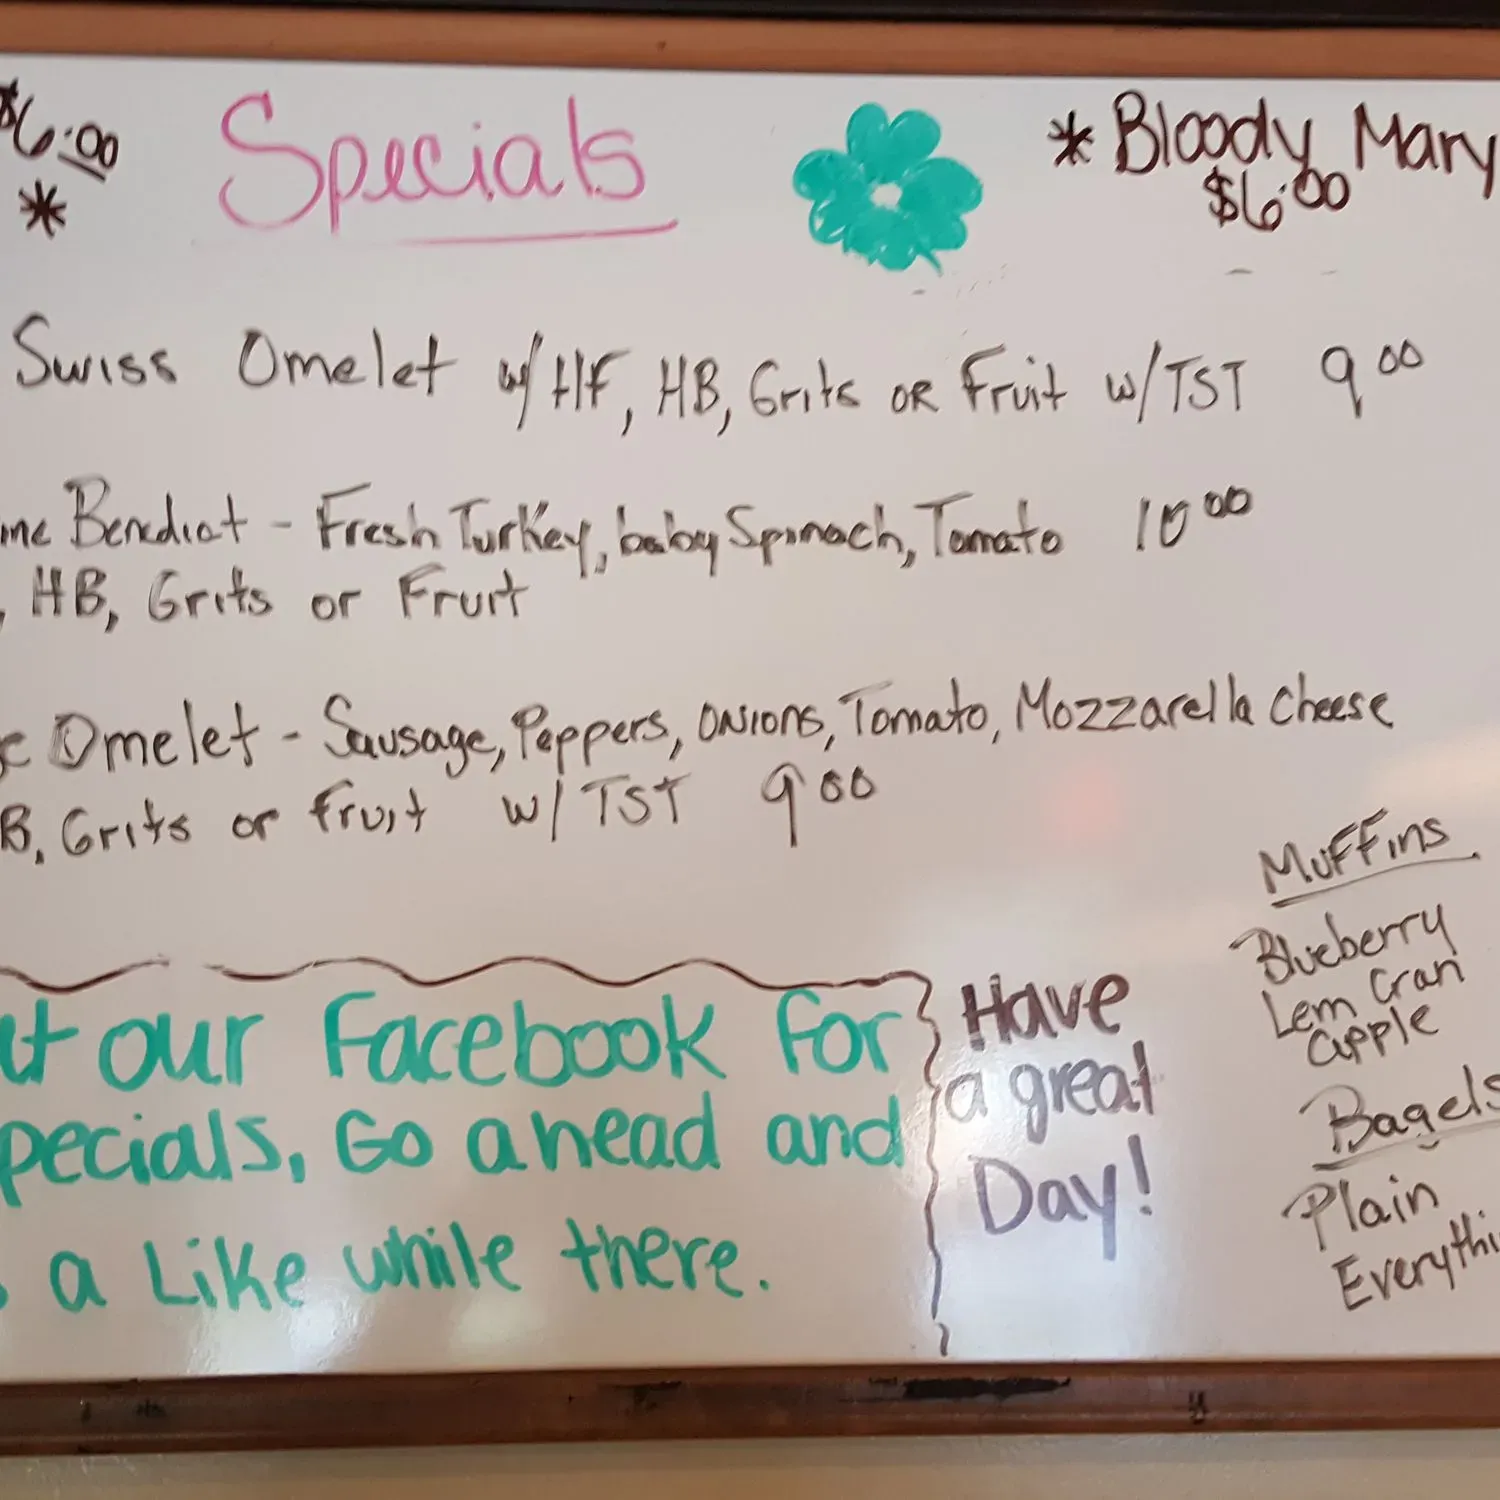 $6.00
*
Specials
* Bloody Mary
$6.00
Swiss Omelet w/ HF, HB, Grits OR Fruit w/TST 9.00
Benedict - Fresh Turkey, baby Spinach, Tomato 10.00
, HB, Grits or Fruit
Omelet - Sausage, Peppers, Onions, Tomato, Mozzarella Cheese
B, Grits or Fruit w/ TST 9.00
our Facebook for
pecials, Go ahead and
a Like while there.
Have
a great
Day!
Muffins
Blueberry
Lem Cran
apple
Bagels
Plain
Everythi